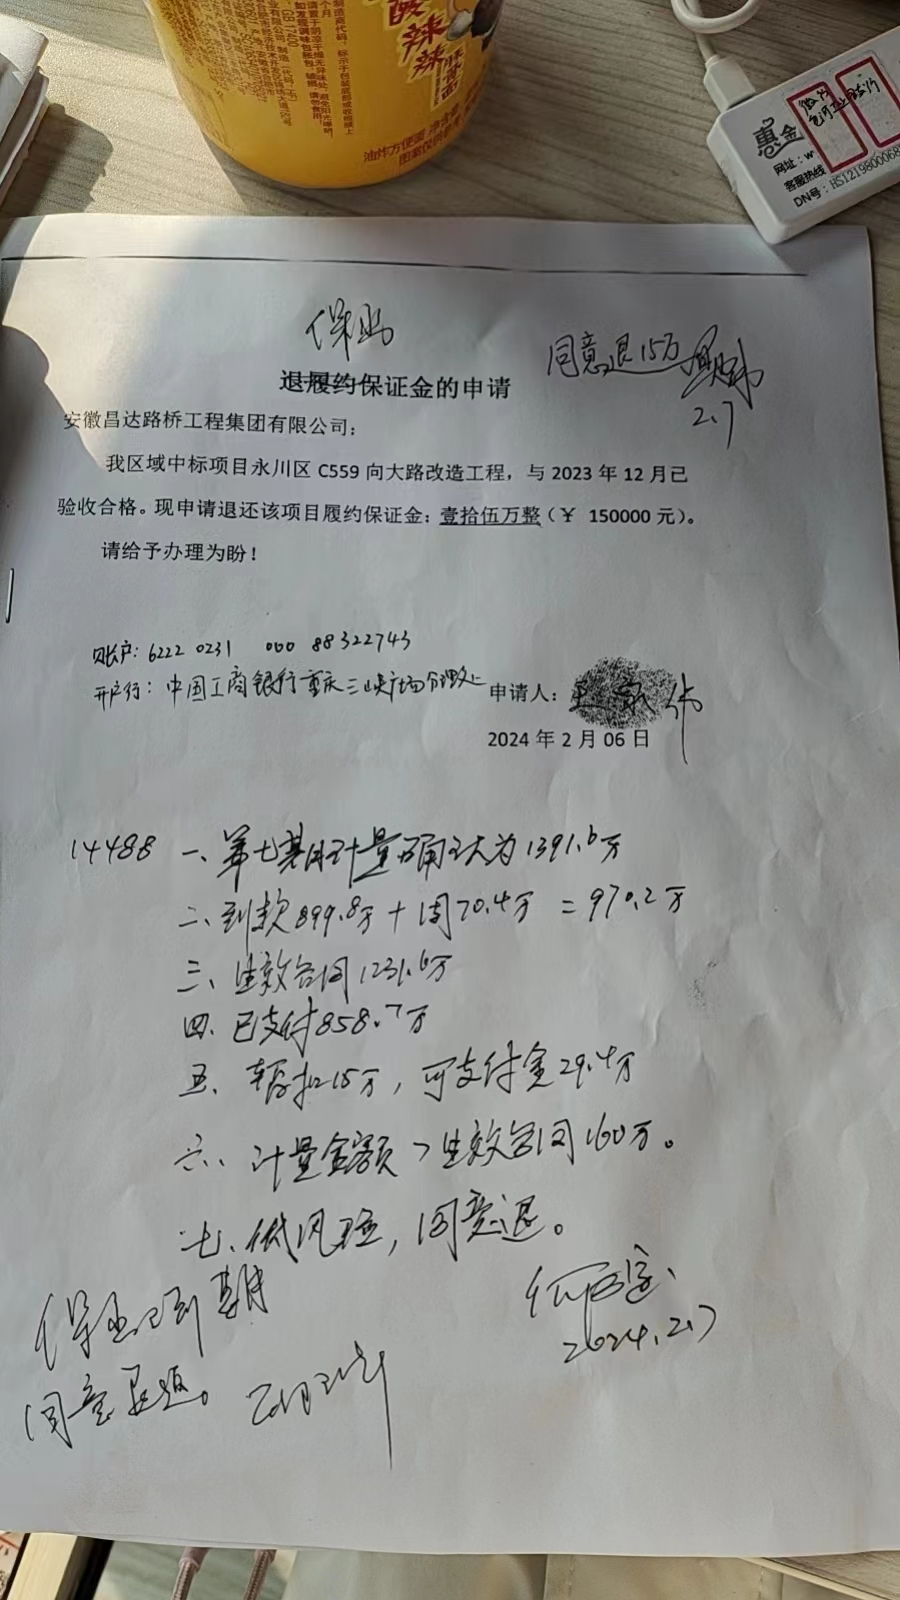 酸辣
油炸方便面 净含量
图案仅供参考
惠金
网址：w
客服热线
DN号：HS12198000068
保函
同意退15万
2.7
退履约保证金的申请
安徽昌达路桥工程集团有限公司：
我区域中标项目永川区 C559 向大路改造工程，与 2023 年 12 月已
验收合格。现申请退还该项目履约保证金：壹拾伍万整（￥ 150000 元）。
请给予办理为盼！
账户：6222 0231 000 88322743
开户行：中国工商银行重庆三峡广场分理处
申请人：
2024 年 2 月 06 日
14488 一、第七期计量确认为1391.6万
二、到款899.8万＋周70.4万＝970.2万
三、生效合同1231.6万
四、已支付858.7万
五、暂扣15万，可支付金29.4万
六、计量金额＞生效合同160万。
七、低风险，同意退。
2024.2.7
保函已到期
同意退返。